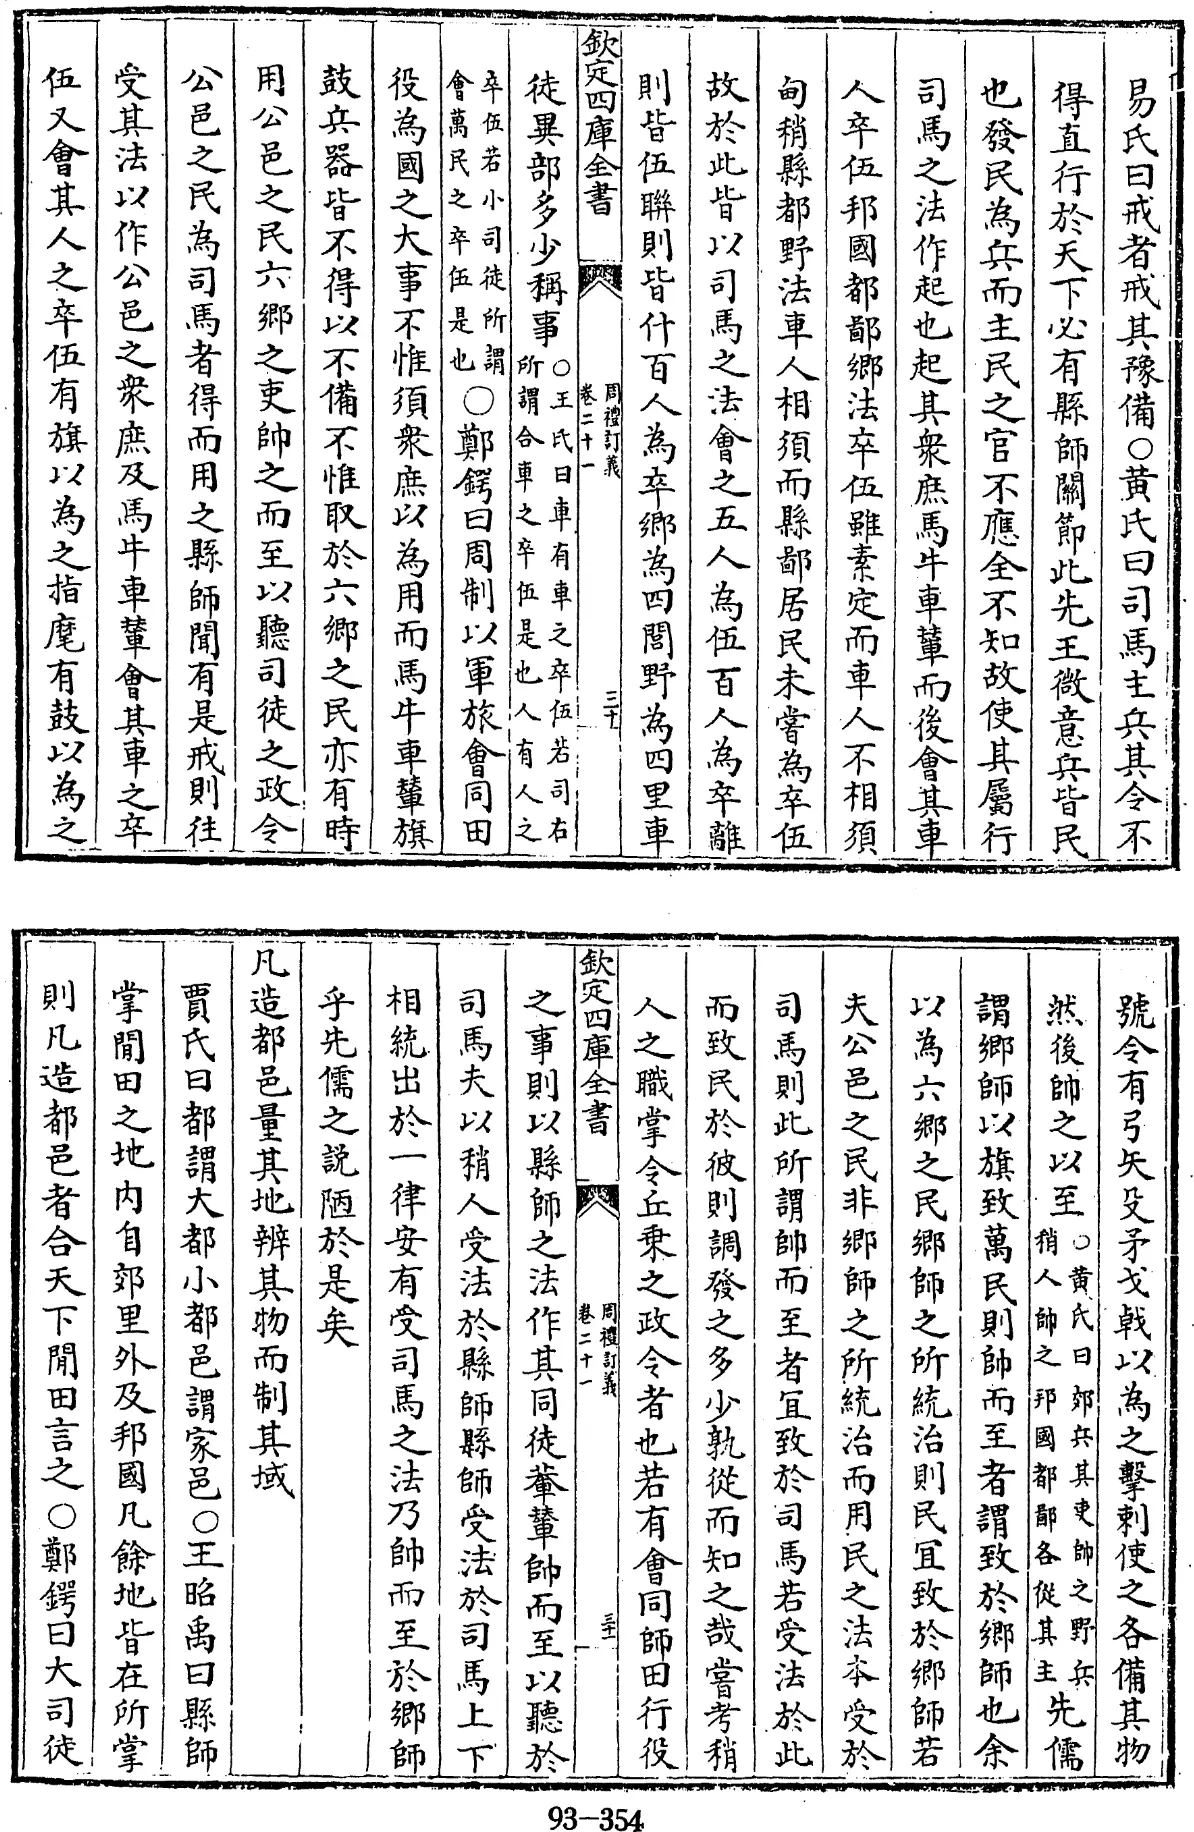 易氏曰戒者戒其豫備○黄氏曰司馬主兵其令不
得直行於天下必有縣師關節此先王微意兵皆民
也發民為兵而主民之官不應全不知故使其屬行
司馬之法作起也起其衆庶馬牛車輦而後會其車
人卒伍邦國都鄙鄉法卒伍雖素定而車人不相須
甸稍縣都野法車人相須而縣鄙居民未嘗為卒伍
故於此皆以司馬之法會之五人為伍百人為卒離
則皆伍聯則皆什百人為卒鄉為四閭野為四里車
欽定四庫全書
周禮訂義
卷二十一
三十
徒異部多少稱事○王氏曰車有車之卒伍若司右
所謂合車之卒伍是也人有人之
卒伍若小司徒所謂
會萬民之卒伍是也○鄭鍔曰周制以軍旅會同田
役為國之大事不惟須衆庶以為用而馬牛車輦旗
鼓兵器皆不得以不備不惟取於六鄉之民亦有時
用公邑之民六鄉之吏帥之而至以聽司徒之政令
公邑之民為司馬者得而用之縣師聞有是戒則往
受其法以作公邑之衆庶及馬牛車輦會其車之卒
伍又會其人之卒伍有旗以為之指麾有鼓以為之
號令有弓矢殳矛戈戟以為之擊刺使之各備其物
然後帥之以至○黄氏曰郊兵其吏帥之野兵
稍人帥之邦國都鄙各從其主先儒
謂鄉師以旗致萬民則帥而至者謂致於鄉師也余
以為六鄉之民鄉師之所統治則民宜致於鄉師若
夫公邑之民非鄉師之所統治而用民之法本受於
司馬則此所謂帥而至者宜致於司馬若受法於此
而致民於彼則調發之多少孰從而知之哉嘗考稍
人之職掌令丘乗之政令者也若有會同師田行役
欽定四庫全書
周禮訂義
卷二十一
三十一
之事則以縣師之法作其同徒輂輦帥而至以聽於
司馬夫以稍人受法於縣師縣師受法於司馬上下
相統出於一律安有受司馬之法乃帥而至於鄉師
乎先儒之説陋於是矣
凡造都邑量其地辨其物而制其域
賈氏曰都謂大都小都邑謂家邑○王昭禹曰縣師
掌閒田之地内自郊里外及邦國凡餘地皆在所掌
則凡造都邑者合天下閒田言之○鄭鍔曰大司徒
93-354